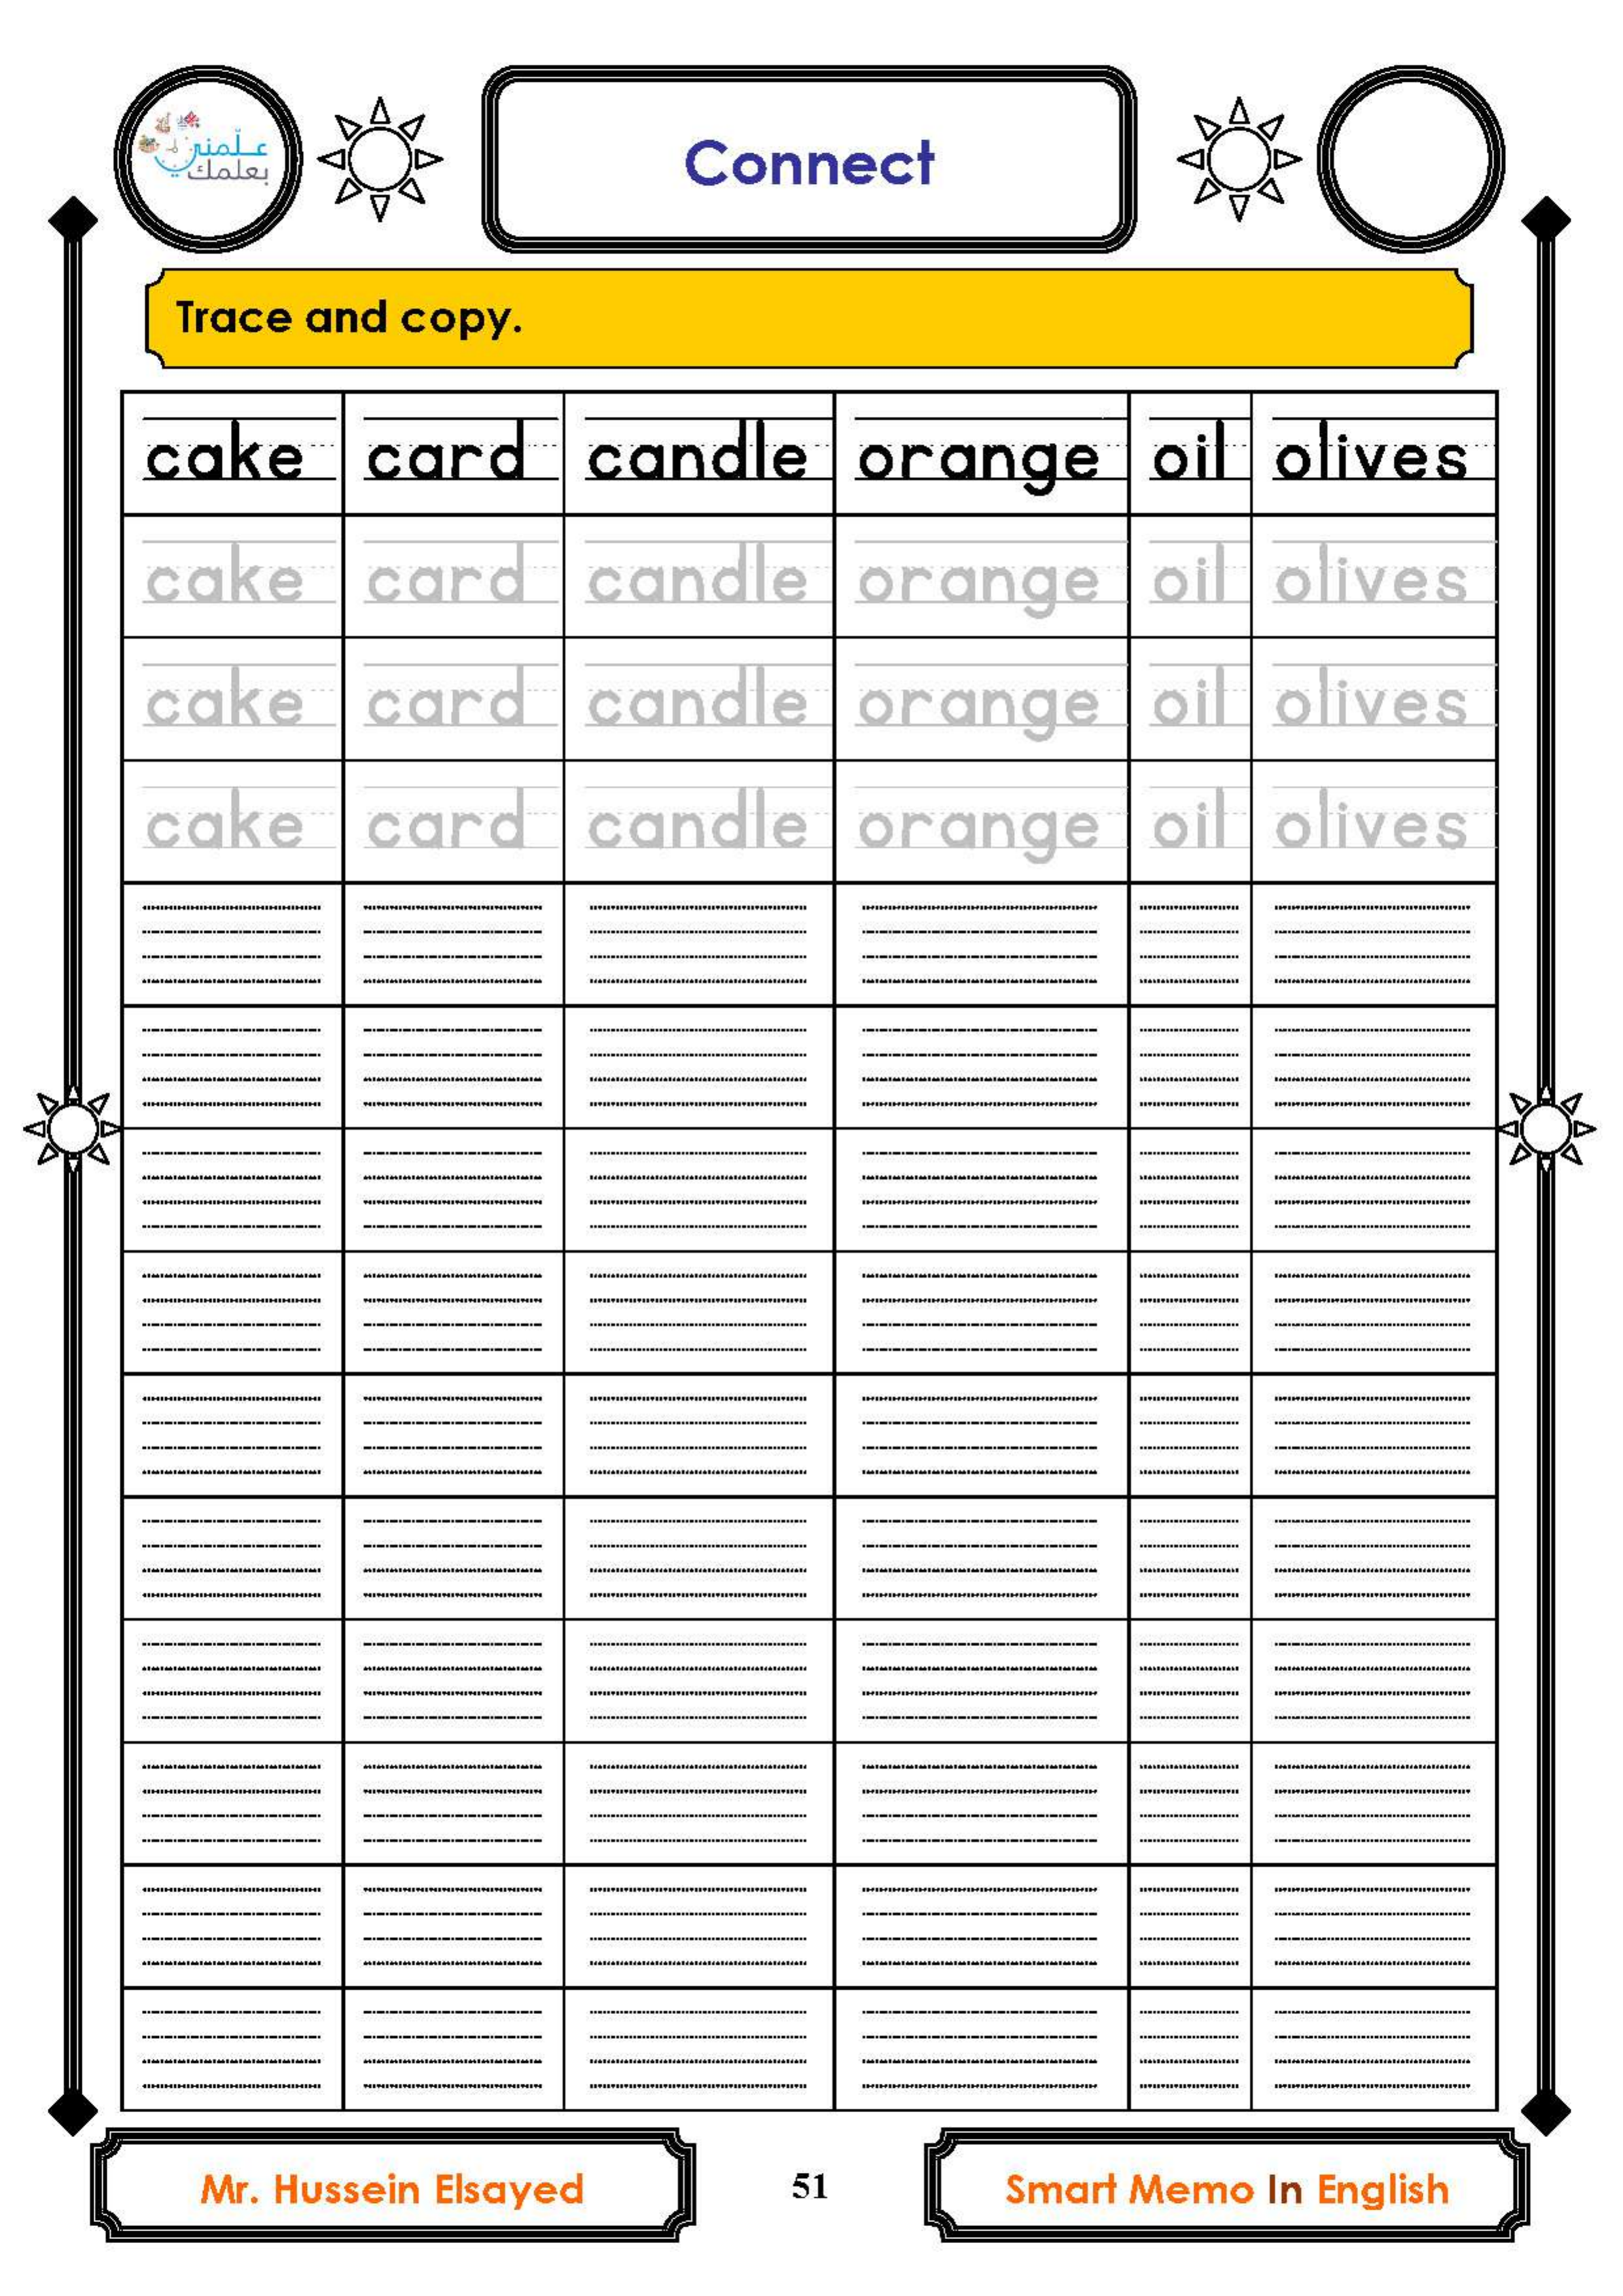 علّمني
بعلمك
Connect
Trace and copy.
cake card candle orange oil olives
cake card candle orange oil olives
cake card candle orange oil olives
cake card candle orange oil olives
Mr. Hussein Elsayed
51
Smart Memo In English